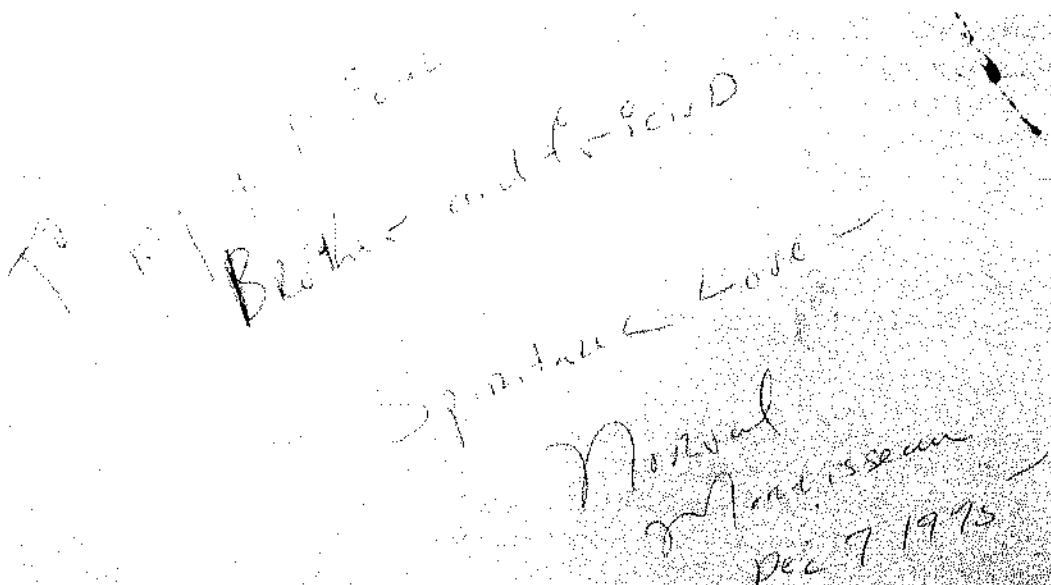 To my
Brother and friEND
Spiritual Love —
Norval
Morrisseau
Dec 7 1975